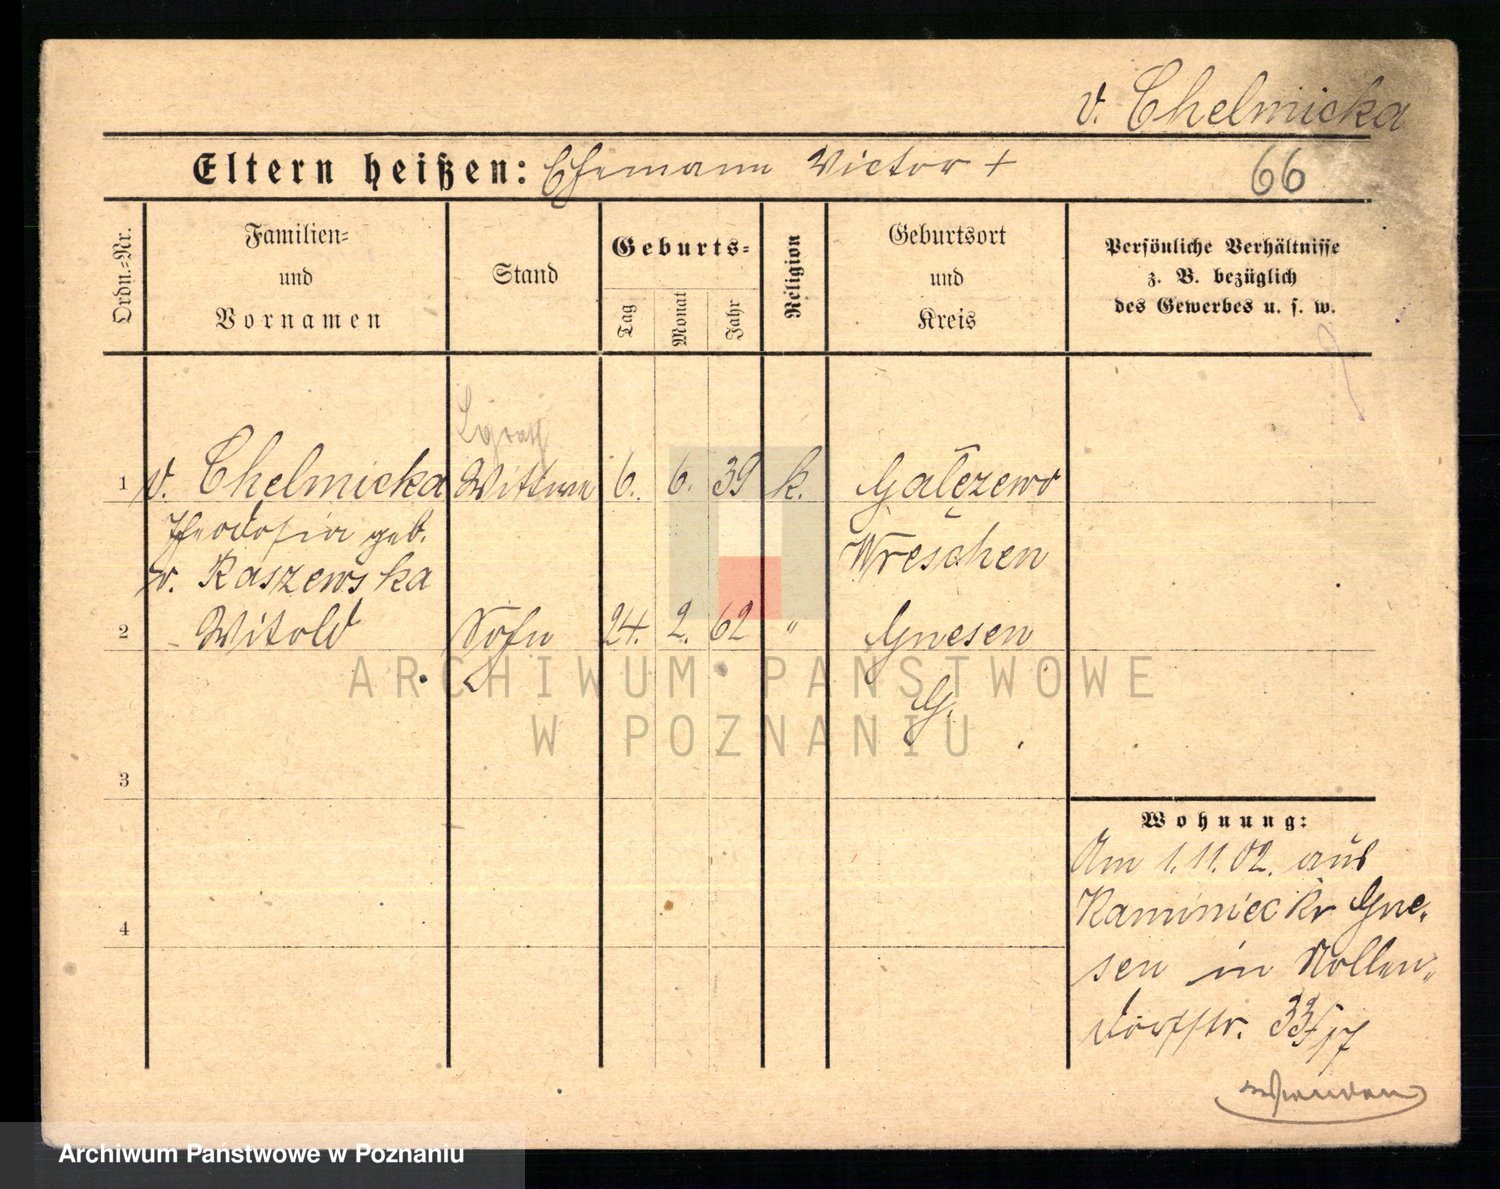 v. Chelmicka
Eltern heißen: Ehemann Victor +
66
Ordn.-Nr.
Familien-
und
Vornamen
Stand
Geburts-
Tag
Monat
Jahr
Religion
Geburtsort
und
Kreis
Persönliche Verhältnisse
z. B. bezüglich
des Gewerbes u. s. w.
1 v. Chelmicka Wittwe 6. 6. 39 k. Gałęzewo
Theodosia geb. Wreschen
v. Raszewska
2 Witold Sohn 24. 2. 62 " Gnesen
G.
3
4
Wohnung:
Am 1.11.02. aus
Kaminiec Kr Gne-
sen in Nollen-
dorfstr. 33
ARCHIWUM PAŃSTWOWE
W POZNANIU
Archiwum Państwowe w Poznaniu